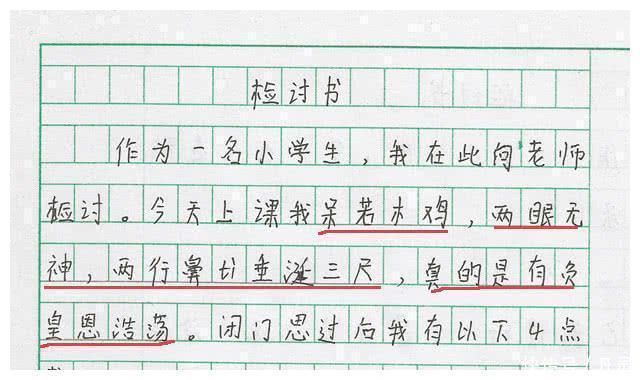 检讨书
作为一名小学生，我在此向老师
检讨。今天上课我呆若木鸡，两眼无
神，两行鼻
垂涎三尺，真的是有负
皇恩浩荡。闭门思过后我有以下4点